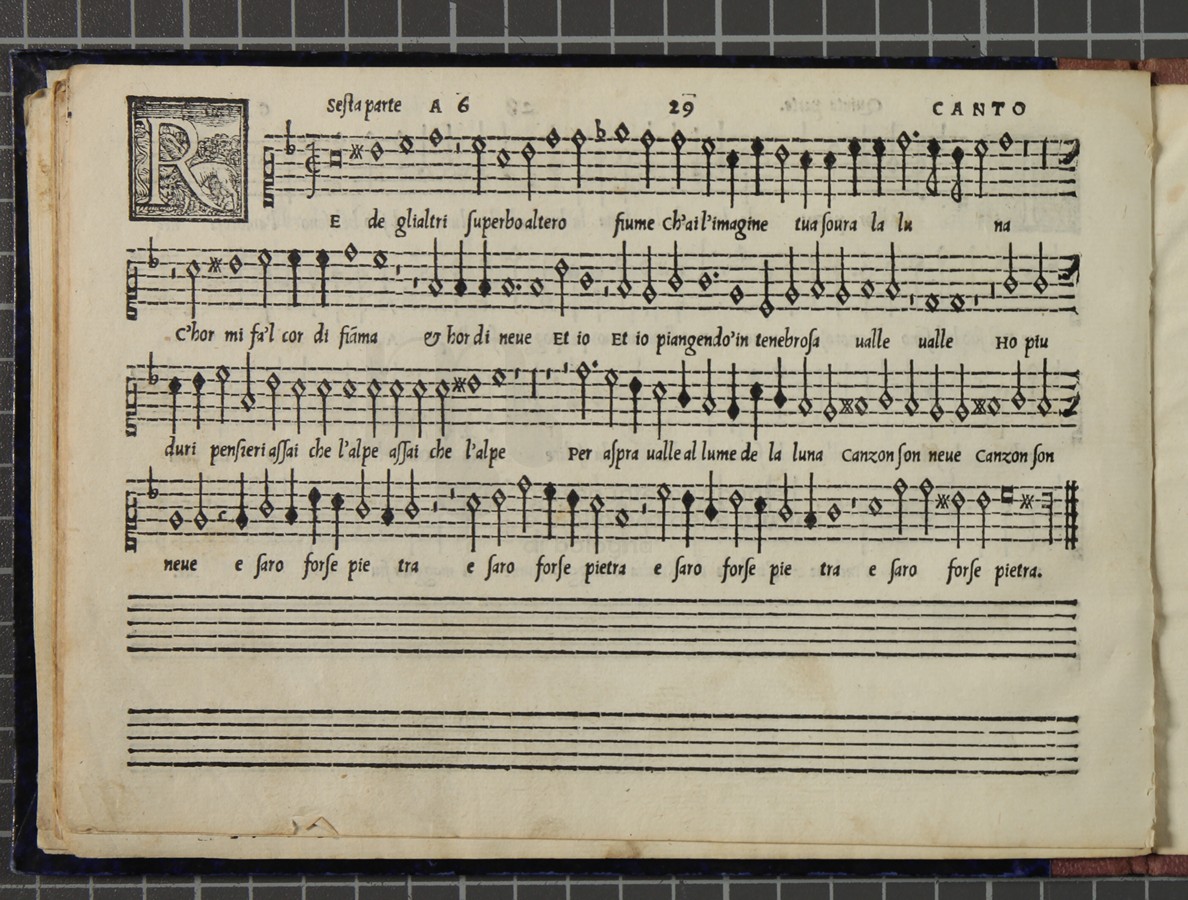 Sesta parte A 6 29 CANTO
RE de glialtri superbo altero fiume Ch'ai l'imagine tua soura la lu na
C'hor mi fa'l cor di fiãma & hor di neue Et io Et io piangendo'in tenebrosa ualle ualle Ho piu
duri pensieri assai che l'alpe assai che l'alpe Per aspra ualle al lume de la luna Canzon son neue Canzon son
neue e saro forse pie tra e saro forse pietra e saro forse pie tra e saro forse pietra.